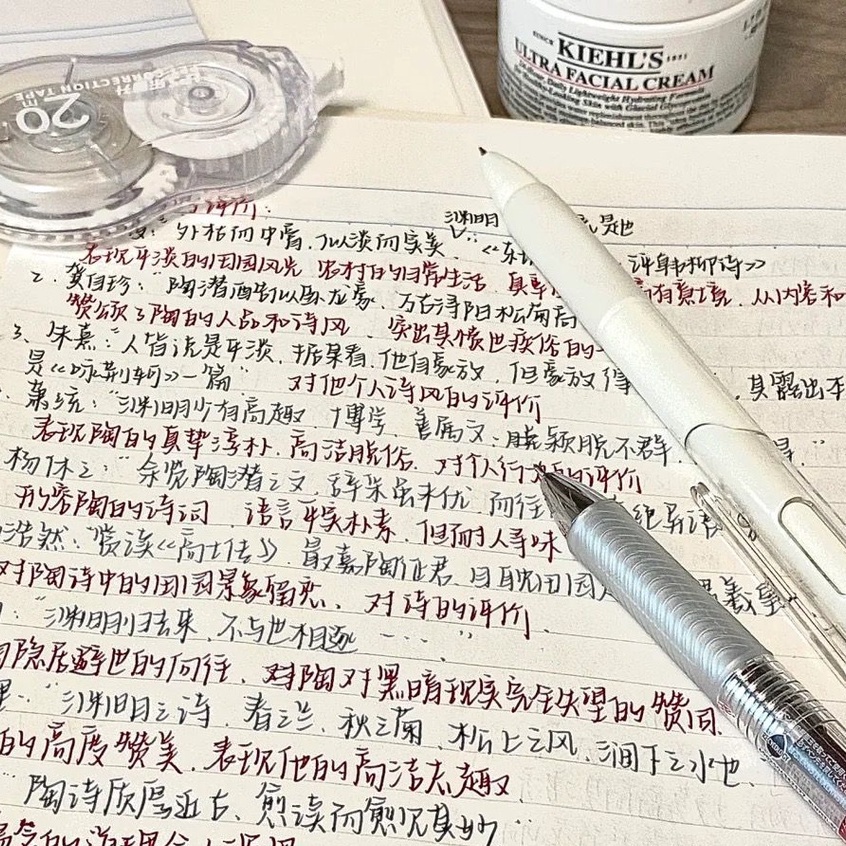 SINCE KIEHL'S 1851
ULTRA FACIAL CREAM
CORRECTION TAPE
20m
诗价:
渊明 是也
外枯而中膏,似淡而实美. 《东 评韩柳诗》
表现平淡的田园风光 农村的日常生活 真 有意境, 从内容和
2、龚自珍:"陶潜酷似卧龙豪, 万古浔阳松菊高
赞颂了陶的人品和诗风 突出其愤世疾俗的
3、朱熹:"人皆说是平淡, 据某看, 他自豪放, 但豪放得 其露出本
是《咏荆轲》一篇" 对他个人诗风的评价
萧统:"渊明少有高趣 博学, 善属文, 脱颖脱不群,
表现陶的真挚淳朴, 高洁脱俗, 对个人行 的评价
杨休之:"余览陶潜之文, 辞采虽未优, 而往 绝异语
形容陶的诗词 语言平实朴素, 但耐人寻味
浩然:"赏读《高士传》 最嘉陶征君, 目耽田园 羲皇
对陶诗中的田园景象留恋, 对诗的评价.
"渊明归去来, 不与世相逐 ----"
隐居避世的向往, 对陶对黑暗现实完全失望的赞同
"渊明之诗, 春之兰, 秋之菊, 松上之风, 涧下之水也
的高度赞美, 表现他的高洁志趣
陶诗质厚近古, 愈读而愈见其妙"